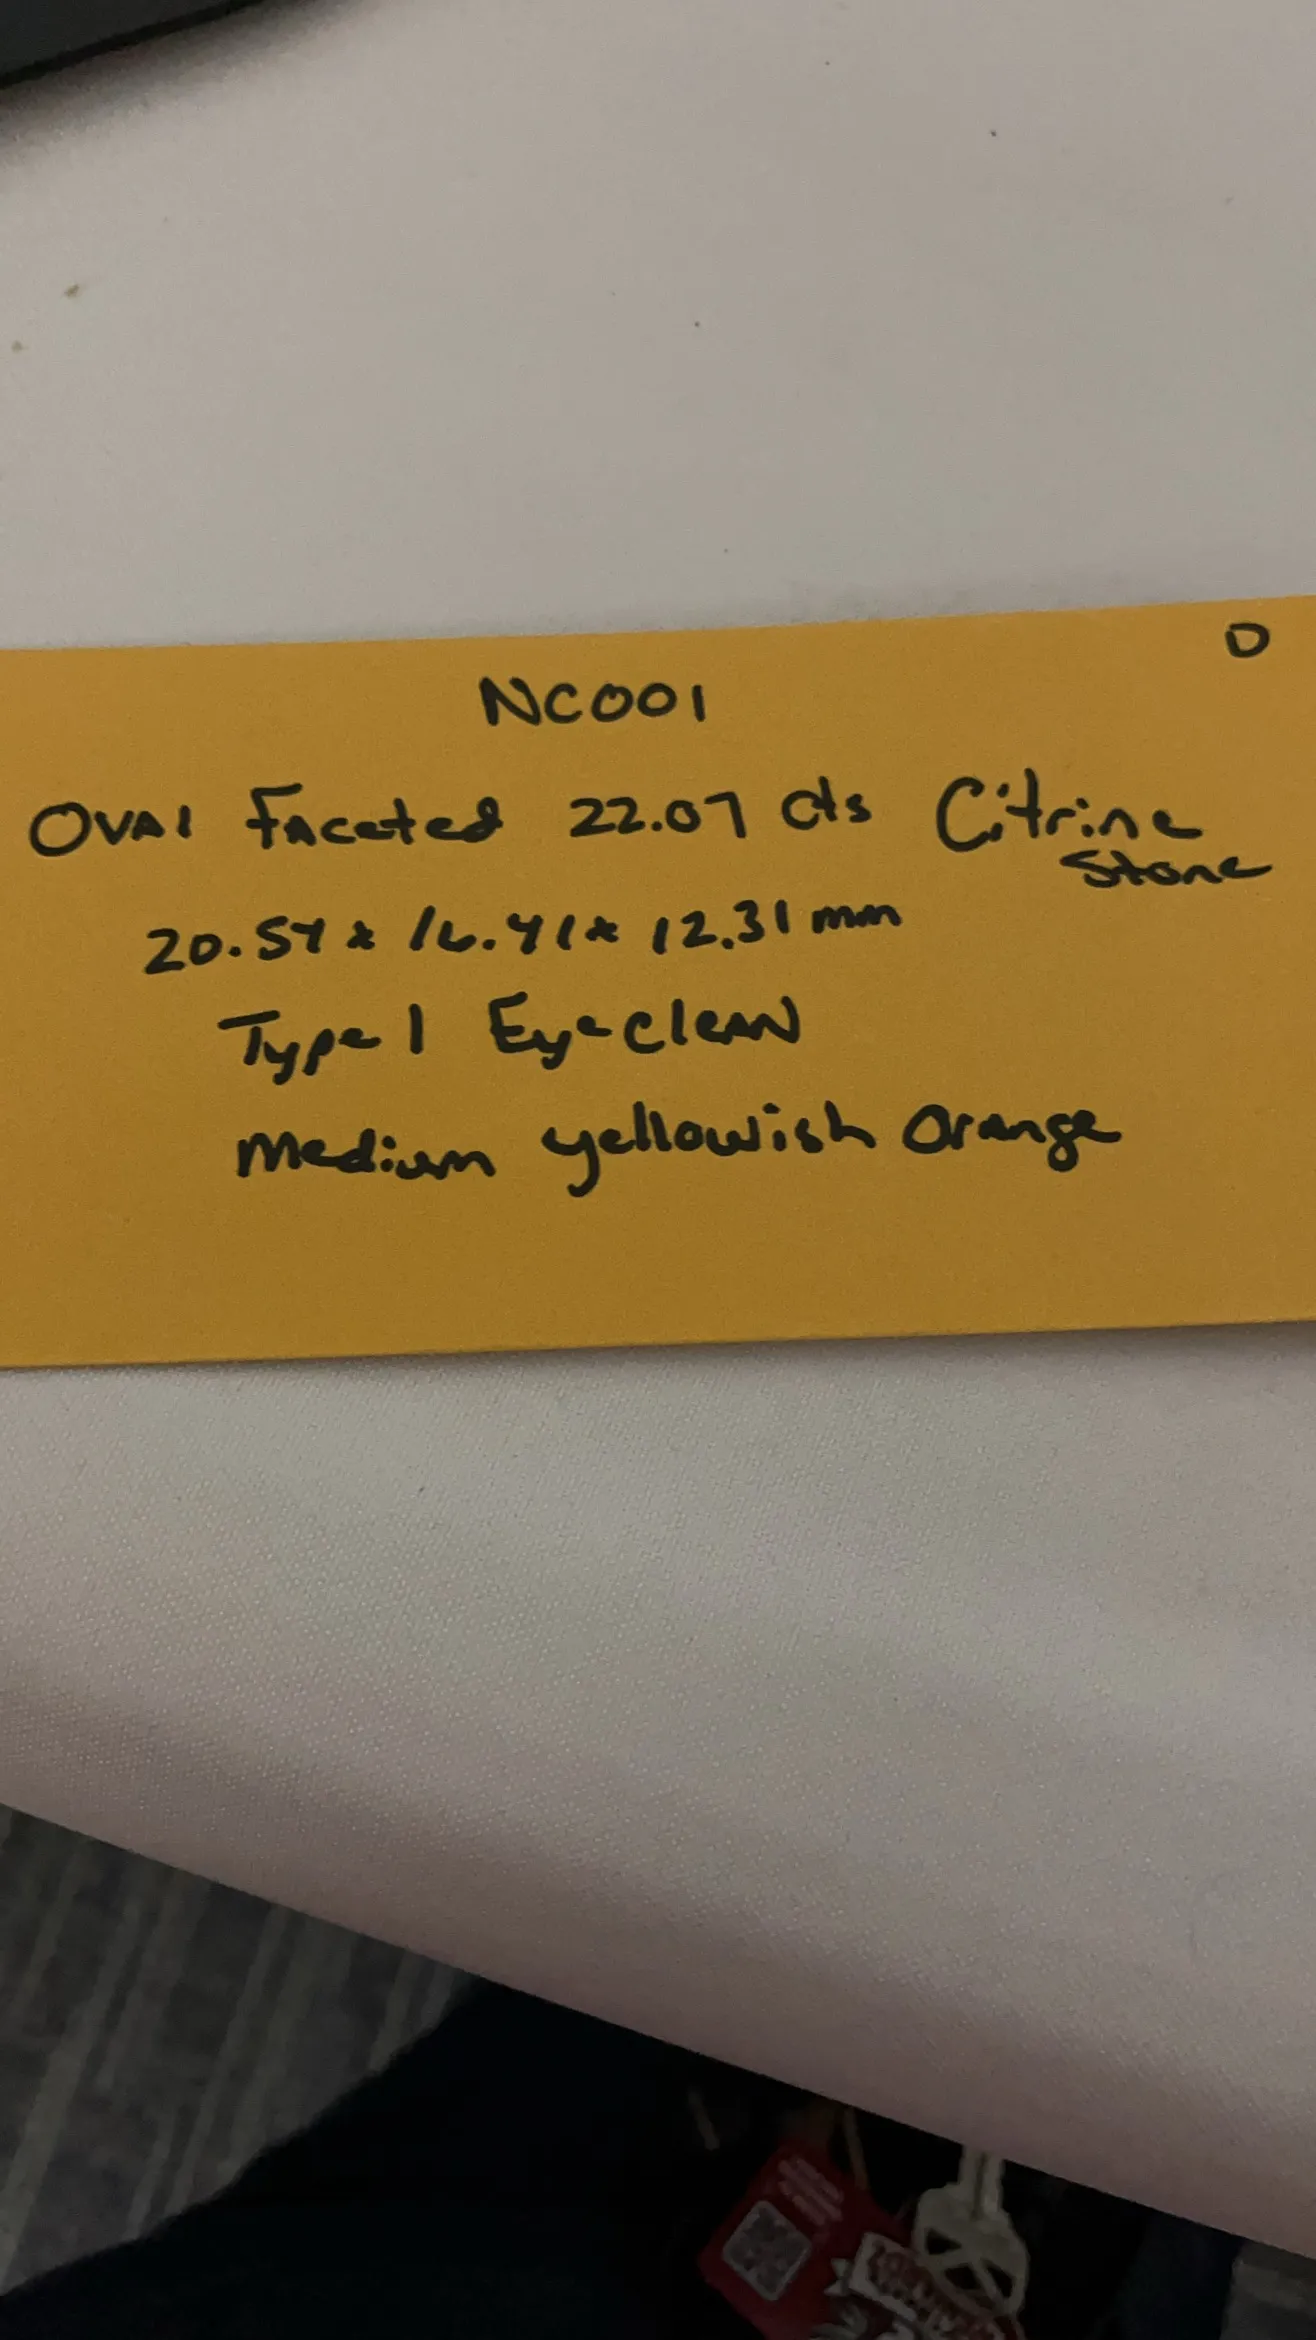 D
NC001
Oval Faceted 22.07 cts Citrine
Stone
20.54 x 16.41 x 12.31 mm
Type 1 Eyeclean
Medium yellowish Orange